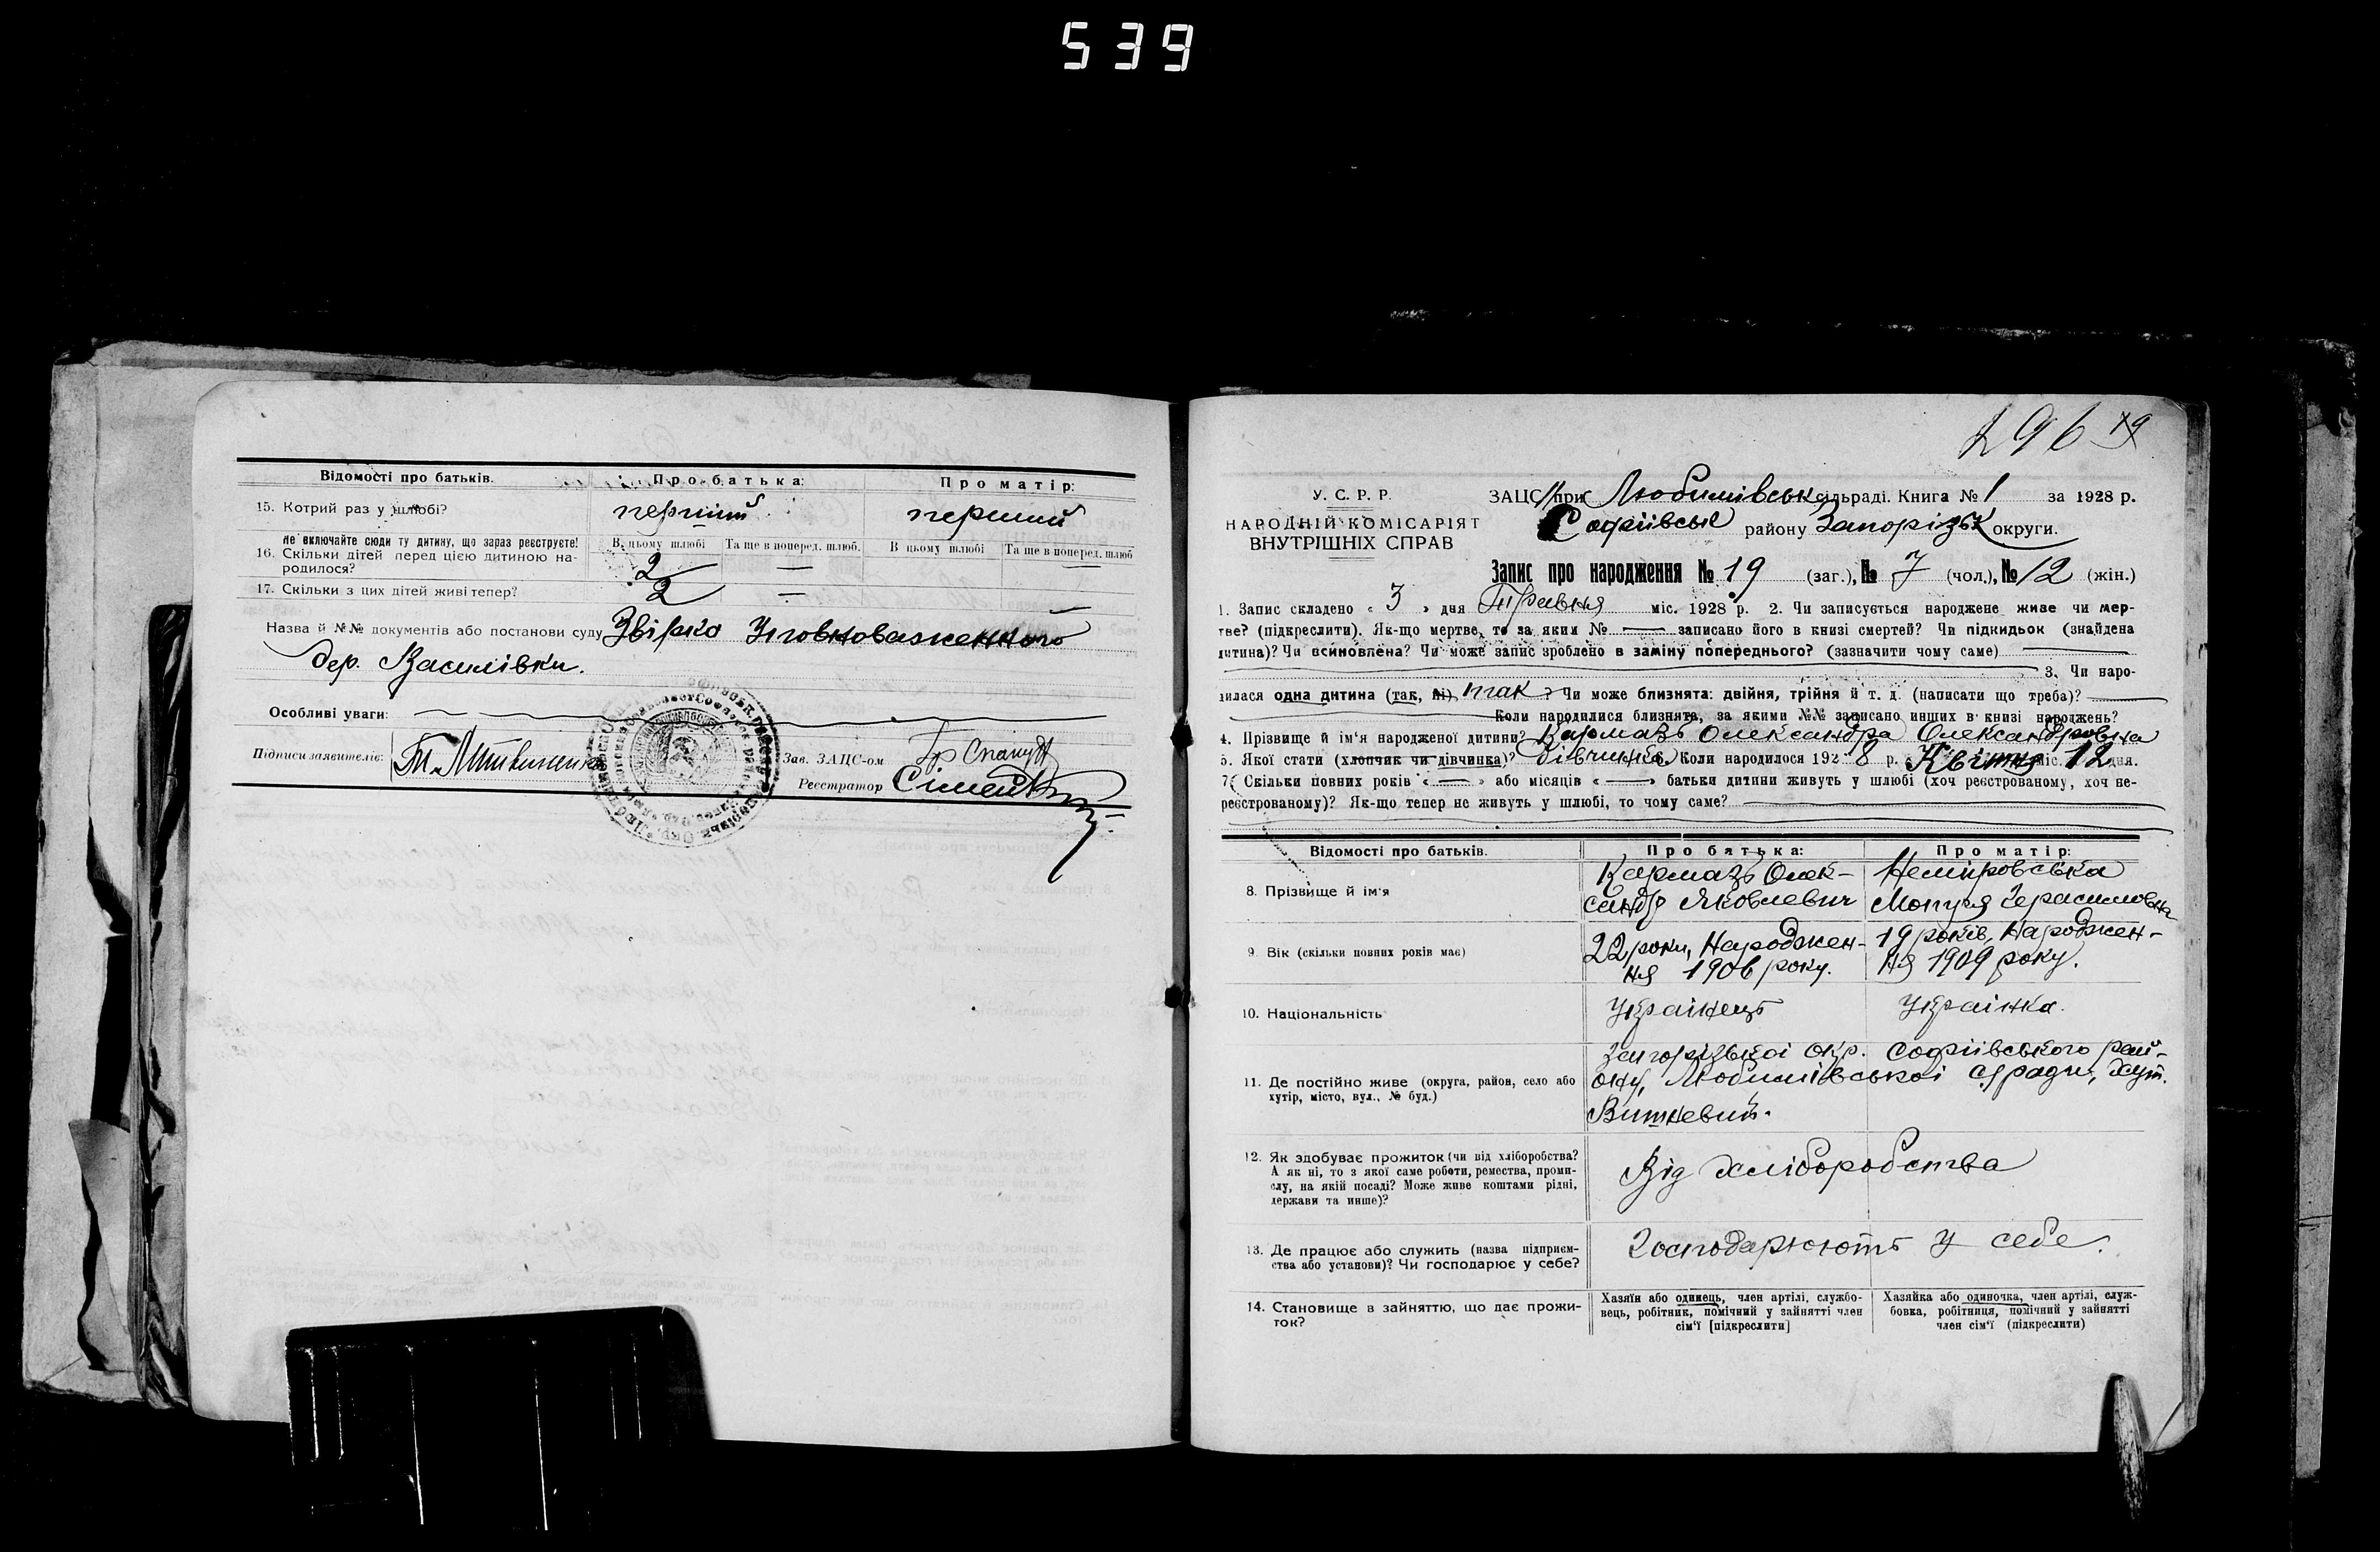 539
Відомості про батьків. Про батька: Про матір:
15. Котрий раз у шлюбі? перший перший
Не включайте сюди ту дитину, що зараз реєструєте!
В цьому шлюбі Та ще в поперед. шлюб. В цьому шлюбі Та ще в поперед. шлюб
16. Скільки дітей перед цією дитиною на-
родилося? 2 — —
17. Скільки з цих дітей живі тепер? 2 — —
Назва й №№ документів або постанови суду Звірко Уповноваженного
дер. Василівки.
Особливі уваги:
Підписи заявителів: Т. Литвиненко Зав. ЗАЦС-ом
Реєстратор
296 19
У. С. Р. Р.
НАРОДНІЙ КОМІСАРІЯТ
ВНУТРІШНІХ СПРАВ
ЗАЦС при Любимівськ сільраді. Книга № 1 за 1928 р.
Софіївськ району Запорізьк округи.
Запис про народження № 19 (заг.), № 7 (чол.), № 12 (жін.)
1. Запис складено « 3 » дня Травня міс. 1928 р. 2. Чи записується народжене живе чи мер-
тве? (підкреслити). Як-що мертве, то за яким № — записано його в книзі смертей? Чи підкидьок (знайдена
дитина)? Чи всиновлена? Чи може запис зроблено в заміну попереднього? (зазначити чому саме)
3. Чи наро-
дилася одна дитина (так, ні) так ? Чи може близнята: двійня, трійня й т. д. (написати що треба)?
Коли народилися близнята, за якими №№ записано инших в книзі народжень?
4. Прізвище й ім'я народженої дитини? Кармазь Олександра Олександровна
5. Якої стати (хлопчик чи дівчинка)? Дівчинка 6. Коли народилося 192 8 р. Квітня міс. 12 дня.
7. Скільки повних років « — » або місяців « — » батьки дитини живуть у шлюбі (хоч реєстрованому, хоч не-
реєстрованому)? Як-що тепер не живуть у шлюбі, то чому саме?
Відомості про батьків. Про батька: Про матір:
8. Прізвище й ім'я
Кармазь Олек-
сандр Яковлевич
Неміровська
Мотря Герасимовна
9. Вік (скільки повних років має)
22 роки, Народжен-
ня 1906 року.
19 років, Народжен-
ня 1909 року.
10. Національність Українець Українка.
11. Де постійно живе (округа, район, село або
хутір, місто, вул., № буд.)
Запорізької окр. Софіївського рай-
ону, Любимівської с/ради, хут.
Вишневий.
12. Як здобуває прожиток (чи від хліборобства?
А як ні, то з якої саме роботи, ремества, проми-
слу, на якій посаді? Може живе коштами рідні,
держави та инше)?
Від хліборобства
13. Де працює або служить (назва підприєм-
ства або установи)? Чи господарює у себе?
Господарюють у себе.
14. Становище в зайняттю, що дає прожи-
ток?
Хазяїн або одинець, член артілі, службо-
вець, робітник, помічний у зайнятті член
сім'ї [підкреслити]
Хазяйка або одиночка, член артілі, служ-
бовка, робітниця, помічний у зайнятті
член сім'ї (підкреслити)